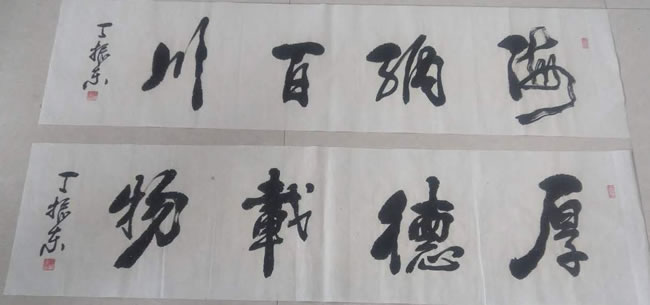 海納百川
丁振东
厚德載物
丁振东